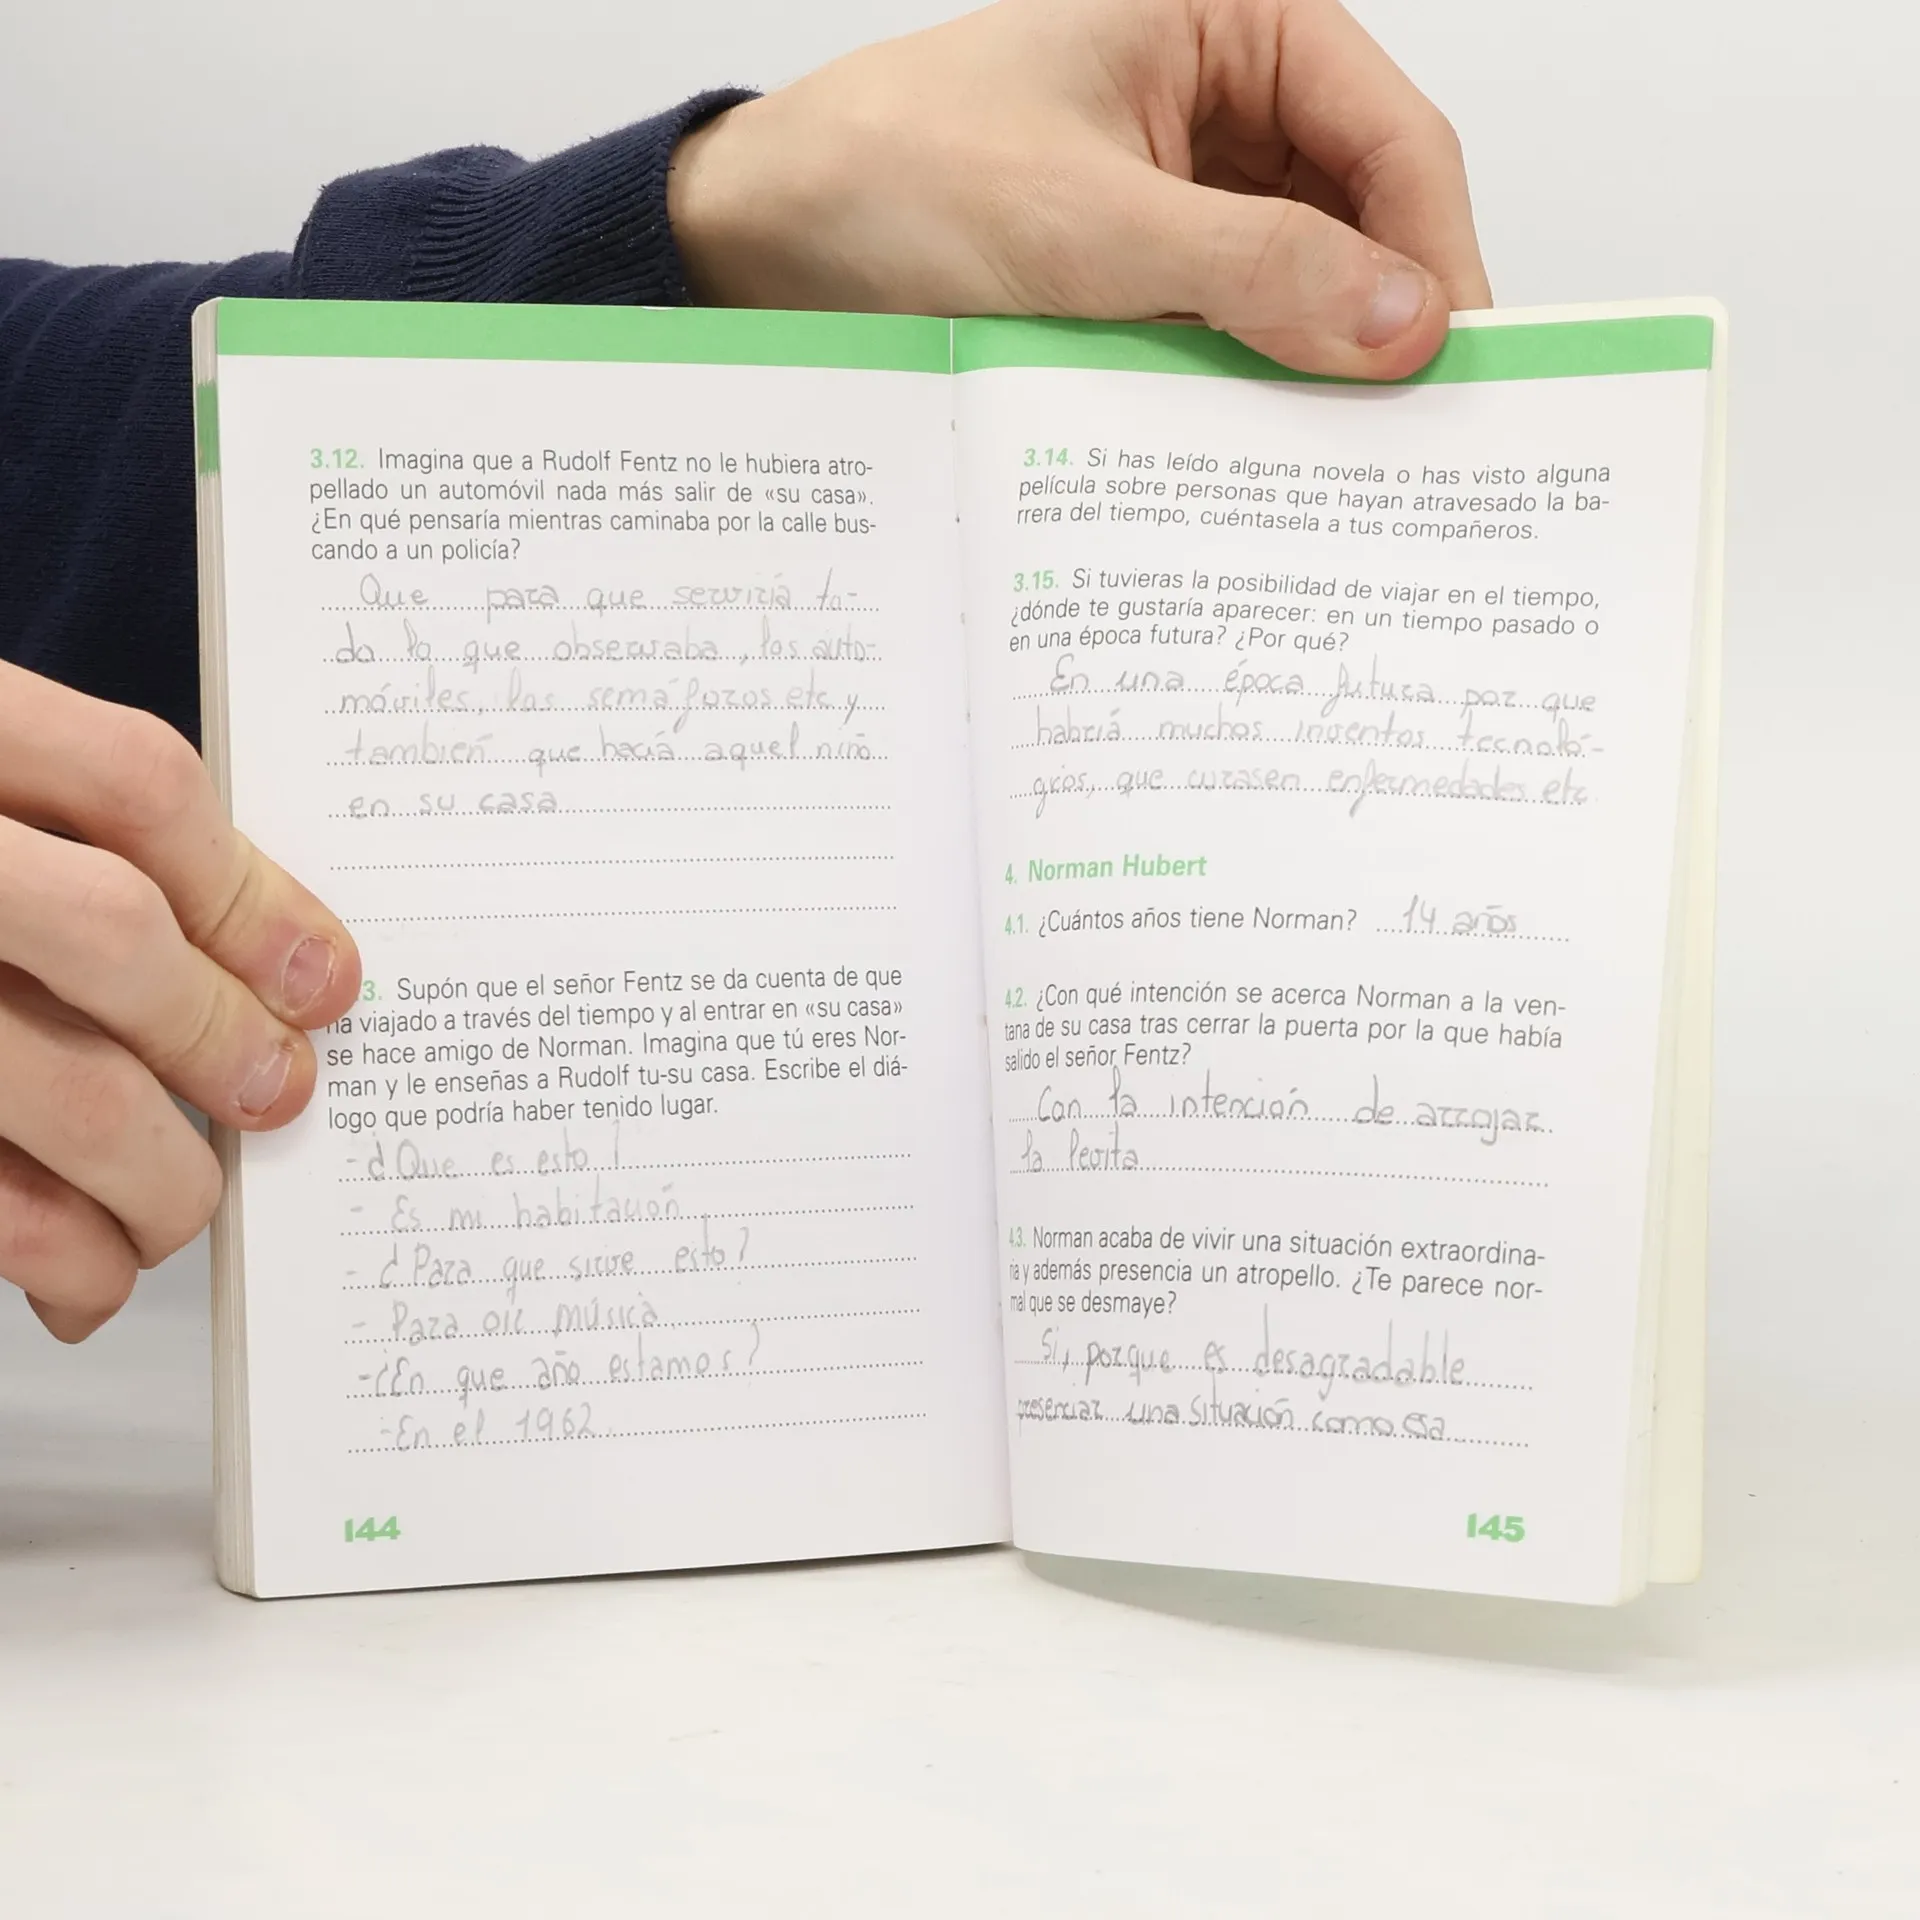 3.12. Imagina que a Rudolf Fentz no le hubiera atro-
pellado un automóvil nada más salir de «su casa».
¿En qué pensaría mientras caminaba por la calle bus-
cando a un policía?
Que para que serviría to-
do lo que observaba, los auto-
móviles, los semáforos etc y
también que hacía aquel niño
en su casa
3. Supón que el señor Fentz se da cuenta de que
ha viajado a través del tiempo y al entrar en «su casa»
se hace amigo de Norman. Imagina que tú eres Nor-
man y le enseñas a Rudolf tu-su casa. Escribe el diá-
logo que podría haber tenido lugar.
- ¿Que es esto?
- Es mi habitación
- ¿Para que sirve esto?
- Para oir música
- ¿En que año estamos?
- En el 1962
144
3.14. Si has leído alguna novela o has visto alguna
película sobre personas que hayan atravesado la ba-
rrera del tiempo, cuéntasela a tus compañeros.
3.15. Si tuvieras la posibilidad de viajar en el tiempo,
¿dónde te gustaría aparecer: en un tiempo pasado o
en una época futura? ¿Por qué?
En una época futura por que
habría muchos inventos tecnoló-
gicos, que curasen enfermedades etc.
4. Norman Hubert
4.1. ¿Cuántos años tiene Norman? 14 años
4.2. ¿Con qué intención se acerca Norman a la ven-
tana de su casa tras cerrar la puerta por la que había
salido el señor Fentz?
Con la intención de arrojar
la levita
4.3. Norman acaba de vivir una situación extraordina-
ria y además presencia un atropello. ¿Te parece nor-
mal que se desmaye?
Si, porque es desagradable
presenciar una situación como esa
145